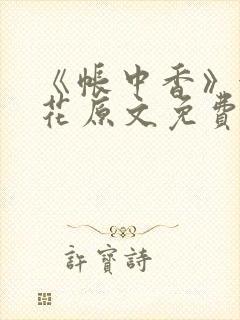 《帐中香》
花原文免費
許寶詩